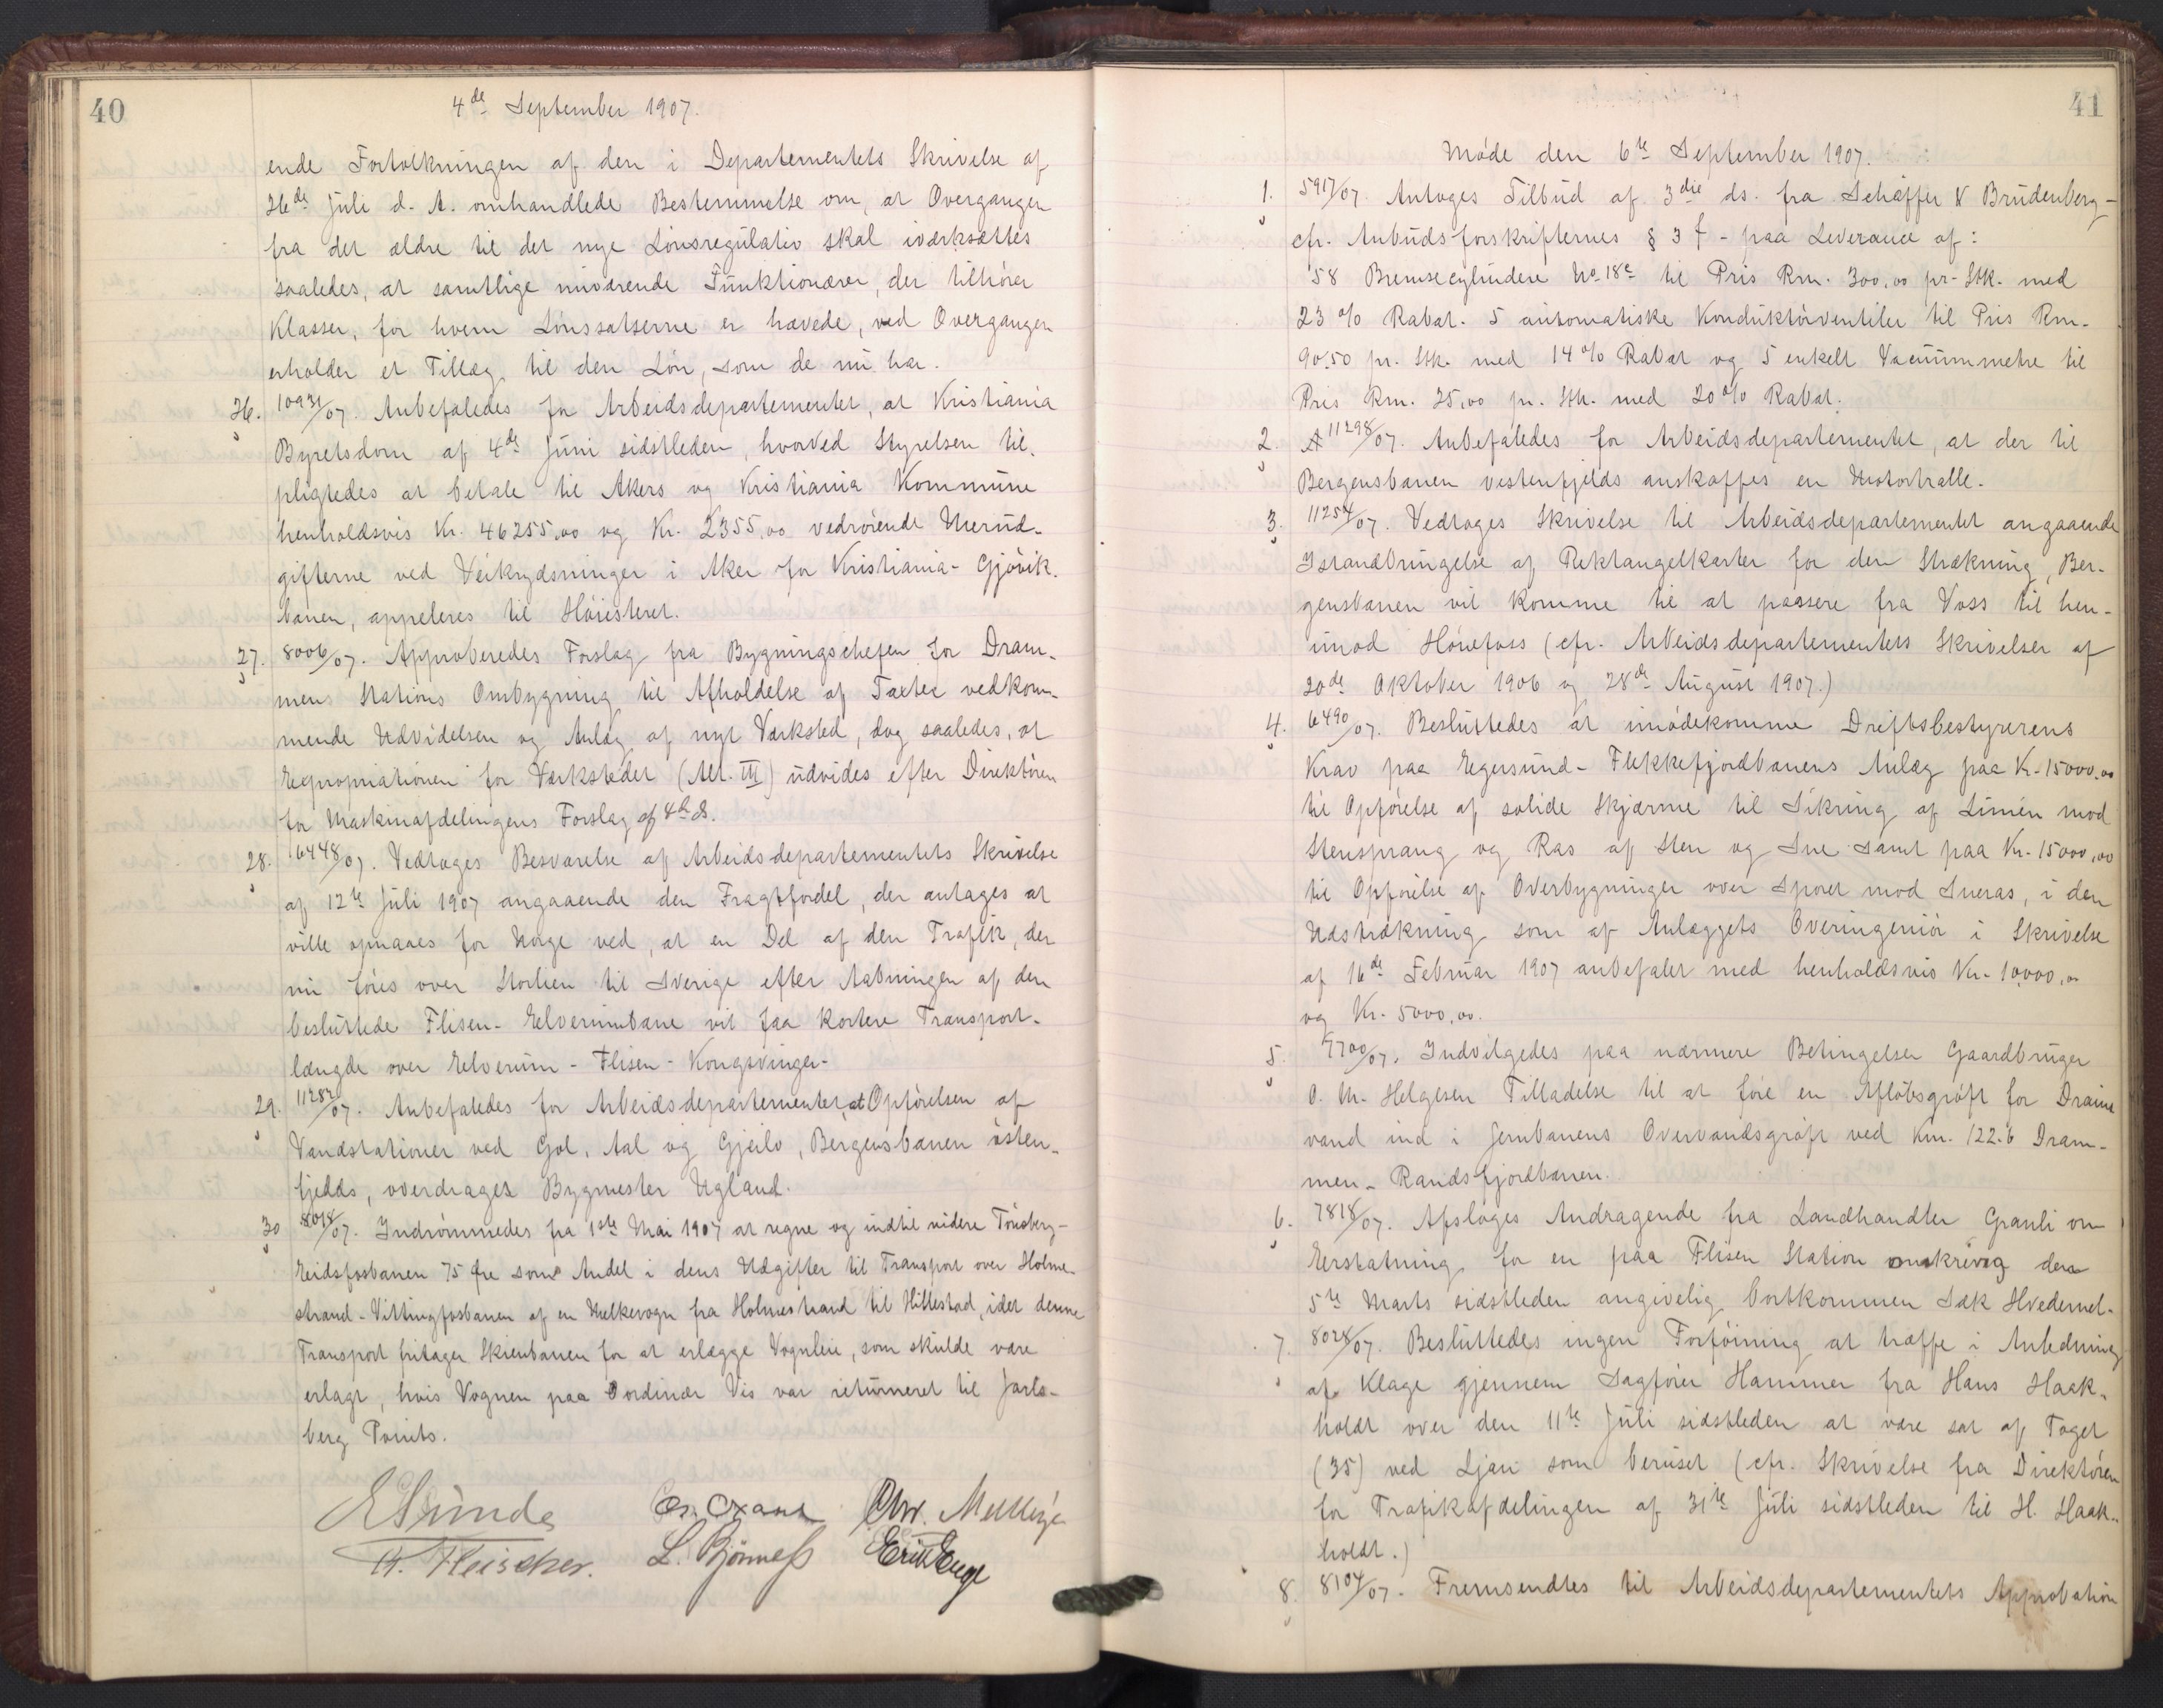 40
4de September 1907.
ende Fortolkningen af den i Departementets Skrivelse af
26de Juli d. A. omhandlede Bestemmelse om, at Overgangen
fra det ældre til det nye Lønsregulativ skal iværksættes
saaledes, at samtlige nuværende Funktionærer, der tilhører
Klasser, for hvem Lønssatserne er hævede, ved Overgangen
erholder et Tillæg til den Løn, som de nu har.
26. 10931/07. Anbefaledes for Arbeidsdepartementet, at Kristiania
Byretsdom af 4de Juni sidstleden, hvorved Styrelsen til-
pligtedes at betale til Akers og Kristiania Kommune
henholdsvis Kr. 46255,00 og Kr. 2355,00 vedrørende Merud-
gifterne ved Veikrydsninger i Aker for Kristiania-Gjøvik-
banen, appeleres til Høiesteret.
27. 8006/07. Approberedes Forslag fra Bygningschefen for Dram-
mens Stations Ombygning til Afholdelse af Taxter vedkom-
mende Udvidelsen og Anlæg af nyt Værksted, dog saaledes, at
Expropriationen for Værkstedet (Alt. III) udvides efter Direktøren
for Maskinafdelingens Forslag af 4de ds.
28. 6448/07. Vedtoges Besvarelse af Arbeidsdepartementets Skrivelse
af 12te Juli 1907 angaaende den Fragtfordel, der antages at
ville opnaaes for Norge ved, at en Del af den Trafik, der
nu føres over Storlien til Sverige efter Aabningen af den
besluttede Flisen-Elverumbane vil faa kortere Transport-
længde over Elverum-Flisen-Kongsvinger-
29. 11282/07. Anbefaledes for Arbeidsdepartementet, at Opførelsen af
Vandstationer ved Gol, Aal og Gjeilo, Bergensbanen østen-
fjelds, overdrages Bygmester Ugland.
30 8018/07. Indrømmedes fra 1ste Mai 1907 at regne og indtil videre Tønsberg-
Eidsfosbanen 75 Øre som Andel i dens Udgifter til Transport over Holme-
strand-Vittingfosbanen af en Melkevogn fra Holmestrand til Hillestad, idet denne
Transport fritager Skienbanen for at erlægge Vognleie, som skulde være
erlagt, hvis Vognen paa ordinær Vis var returneret til Jarls-
berg Points.
E Sunde
Chr. Mellbye
H. Fleischer.
L. Bjørness
41
Møde den 6te September 1907.
1. 5917/07. Antoges Tilbud af 3die ds. fra Schäffer & Brudenberg-
cfr. Anbudsforskrifternes § 3 f - paa Leverance af:
58 Bremsecylindere No. 18e til Pris Rm. 300,00 pr. Stk. med
23 % Rabat. 5 automatiske Konduktørventiler til Pris Rm.
90.50 pr. Stk. med 14 % Rabat og 5 enkelt Vacuummetre til
Pris Rm. 25,00 pr. Stk. med 20 % Rabat.
2. A 11298/07. Anbefaledes for Arbeidsdepartementet, at der til
Bergensbanen vestenfjelds anskaffes en Motortralle.
3. 11254/07. Vedtoges Skrivelse til Arbeidsdepartementet angaaende
Istandbringelse af Rektangelkarter for den Strækning, Ber-
gensbanen vil komme til at passere fra Voss til hen-
imod Hønefoss (cfr. Arbeidsdepartementets Skrivelser af
20de Oktober 1906 og 28de August 1907.)
4. 6490/07. Besluttedes at imødekomme Driftsbestyrerens
Krav paa Egersund-Flekkefjordbanens Anlæg paa Kr. 15000,00
til Opførelse af solide Skjærme til Sikring af Linien mod
Stensprang og Ras af Sten og Sne samt paa Kr. 15000,00
til Opførelse af Overbygninger over Sporet mod Sneras, i den
Udstrækning som af Anlæggets Overingeniør i Skrivelse
af 16de Februar 1907 anbefalet med henholdsvis Kr. 10,000,00
og Kr. 5000,00.
5. 7700/07. Indvilgedes paa nærmere Betingelser Gaardbruger
O. M. Helgesen Tilladelse til at føre en Afløbsgrøft for Draine
vand ind i Jernbanens Overvandsgrøft ved Km. 122.6 Dram-
men-Randsfjordbanen.
6. 7818/07. Afsloges Andragende fra Landhandler Granli om
Erstatning for en paa Flisen Station omkring den
5te Marts sidstleden angivelig bortkommen Sæk Hvedemel.
7. 8028/07. Besluttedes ingen Forføining at træffe i Anledning
af Klage gjennem Sagfører Hammer fra Hans Haak-
holdt over den 11te Juli sidstleden at være sat af Toget
(35) ved Ljan som beruset (cfr. Skrivelse fra Direktøren
for Trafikafdelingen af 31te Juli sidstleden til H. Haak-
holdt.)
8. 8104/07. Fremsendtes til Arbeidsdepartementets Approbation